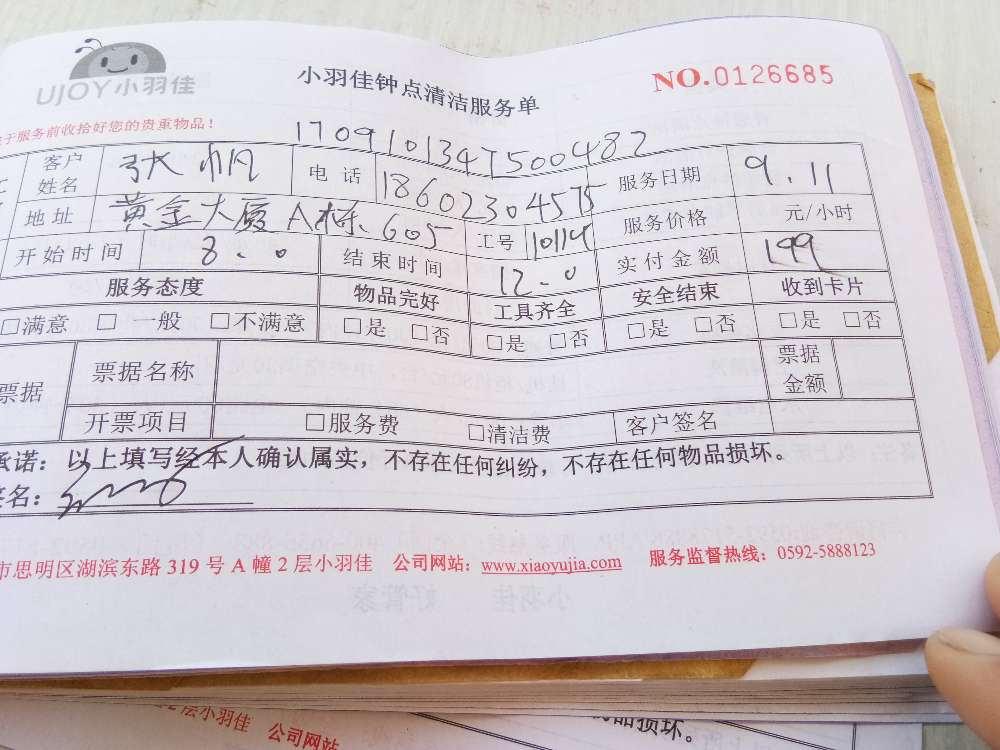 UJOY小羽佳
小羽佳钟点清洁服务单
NO.0126685
于服务前收拾好您的贵重物品!
1709101347500482
客户姓名 张帆 电话 18602304575 服务日期 9.11
地址 黄金大厦A栋.605 工号 10114 服务价格 元/小时
开始时间 8..0 结束时间 12.0 实付金额 199
服务态度 物品完好 工具齐全 安全结束 收到卡片
□满意 □一般 □不满意 □是 □否 □是 □否 □是 □否 □是 □否
票据 票据名称 票据金额
开票项目 □服务费 □清洁费 客户签名
承诺:以上填写经本人确认属实,不存在任何纠纷,不存在任何物品损坏。
签名:
市思明区湖滨东路 319 号 A 幢 2 层小羽佳 公司网站:www.xiaoyujia.com 服务监督热线:0592-5888123
2层小羽佳 公司网站
品损坏。